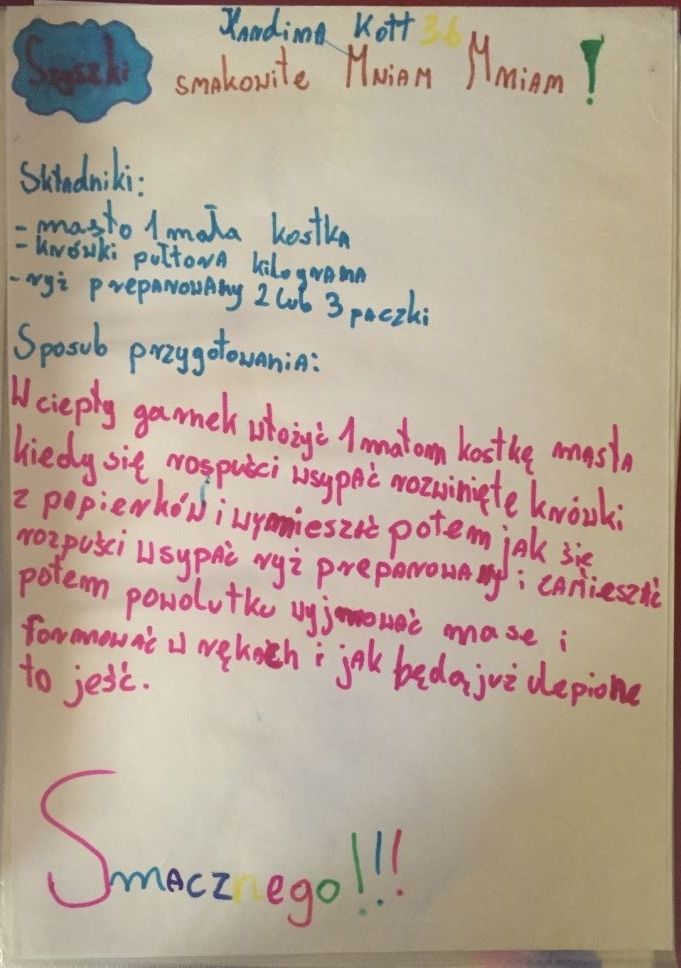 Kott 3b
Szyszki
smakowite Mniam Mniam !
Składniki:
- masło 1 mała kostka
- krówki pułtora kilograma
- ryż preparowany 2 lub 3 paczki
Sposub przygotowania:
W ciepły garnek włożyć 1 małom kostkę masła
kiedy się rospuści wsypać rozwinięte krówki
z papierków i wymieszać potem jak się
rozpuści wsypać ryż preparowany i zamieszać
potem powolutku wyjmować mase i
formować w rękach i jak będą już ulepione
to jeść.
Smacznego!!!